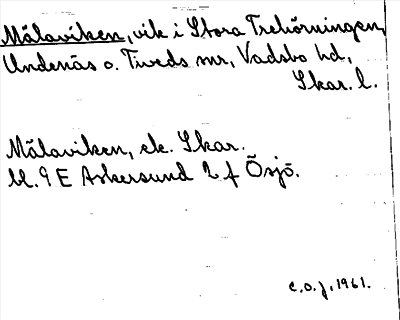 Målaviken, vik i Stora Trehörningen,
Undenäs o. Tiveds snr, Vadsbo hd,
Skar. l.
Målaviken, ek. Skar.
bl. 9 E Askersund 2 f Ösjö.
C.O.J. 1961.